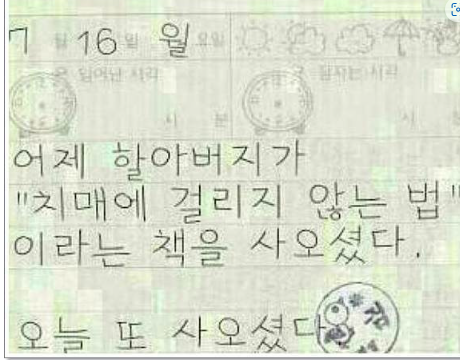 7월 16일 월요일
일어난 시각 잠자는 시각
시 분 시
어제 할아버지가
"치매에 걸리지 않는 법"
이라는 책을 사오셨다.
오늘 또 사오셨다.